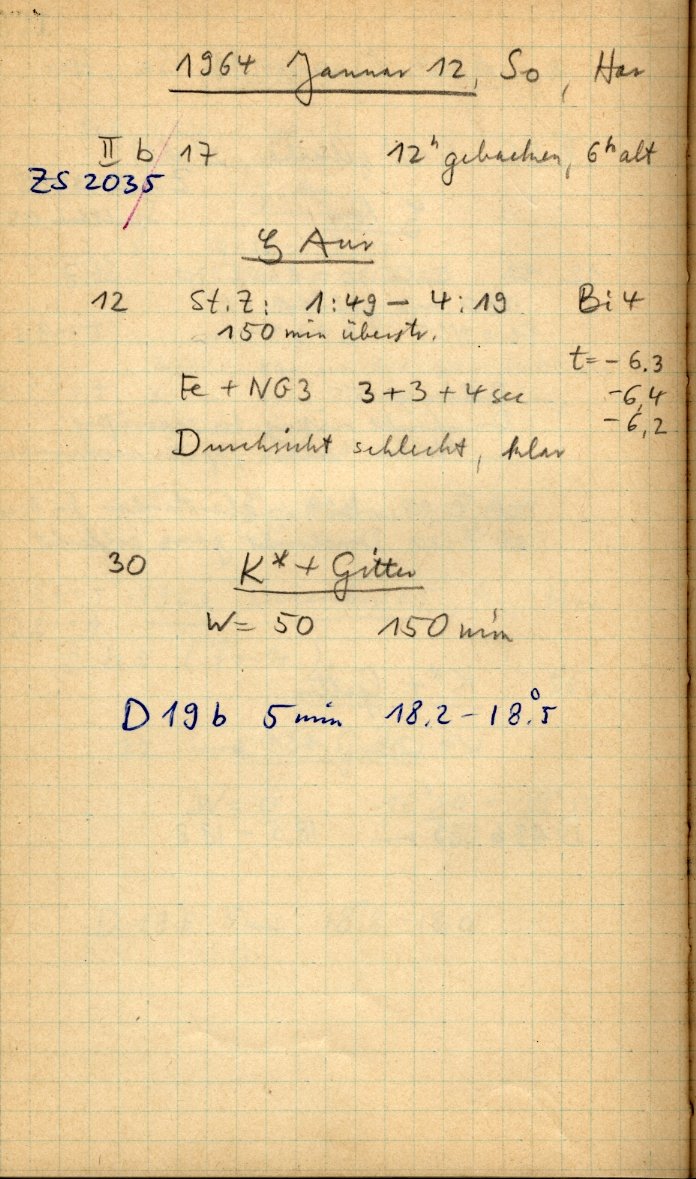 1964 Januar 12, So, Har
II b 17 12h gebacken, 6h alt
ZS 2035
ζ Aur
12 St.Z: 1:49 – 4:19 Bi 4
150 min überstr.
t = -6.3
Fe + NG3 3+3+4 sec -6,4
-6,2
Durchsicht schlecht, klar
30 K* + Gitter
W = 50 150 min
D 19 b 5 min 18.2 – 18°.5